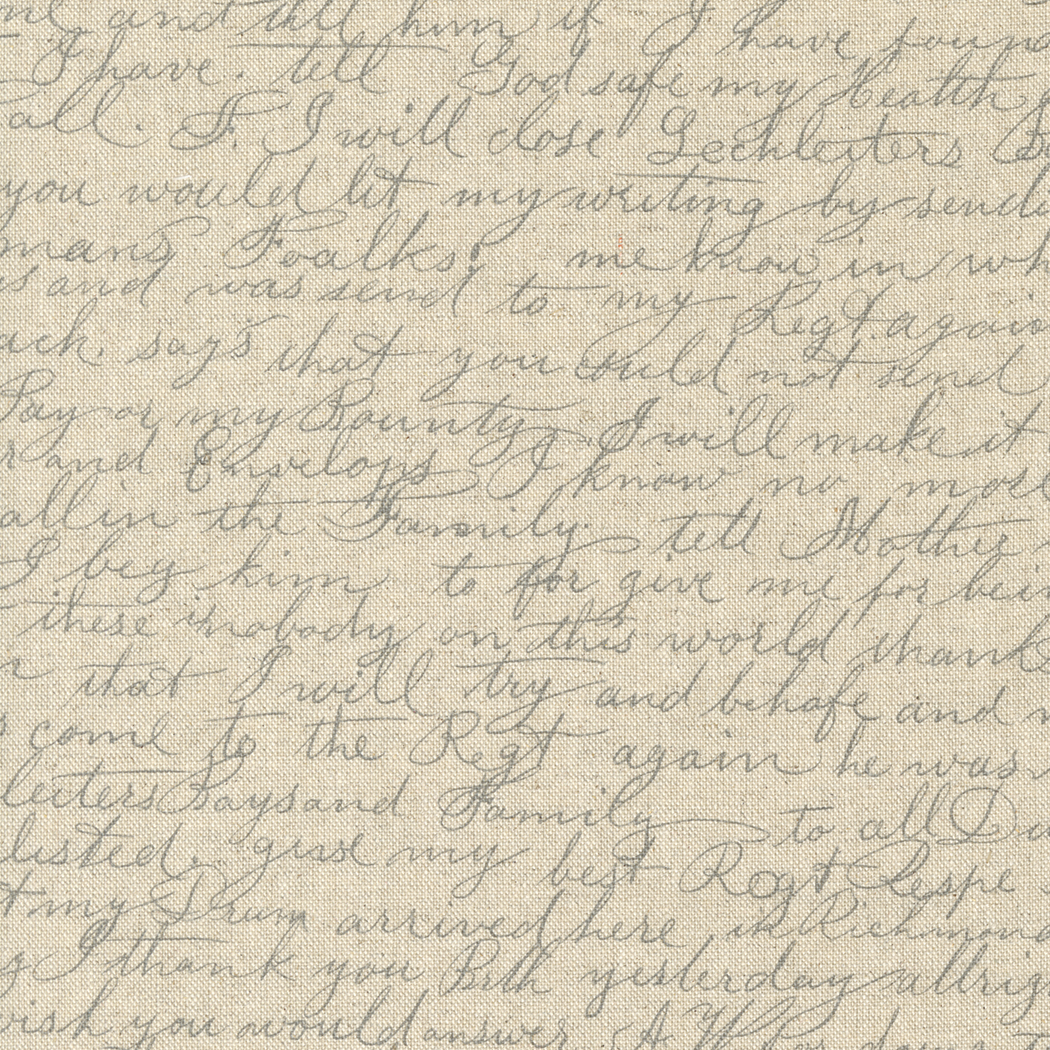 and tell him if I have foun
I have. tell God safe my Health
all. F. I will close Lechleiters
you would let my writing by sendi
mans Foalks. me know in wh
and was send to my Regt again
ack. says that you could not send
Pay or my Bounty I will make it
and Envelops I know no more
all in the Family. tell Mother
I beg him to for give me for bein
these is nobody on this world thanks
that I will try and behafe and
come to the Regt again he was
leiters Boys and Family to all
listed. give my best Regt Respe
my Drum arrived here in Richmond
I thank you Bith yesterday allrig
wish you would answer.